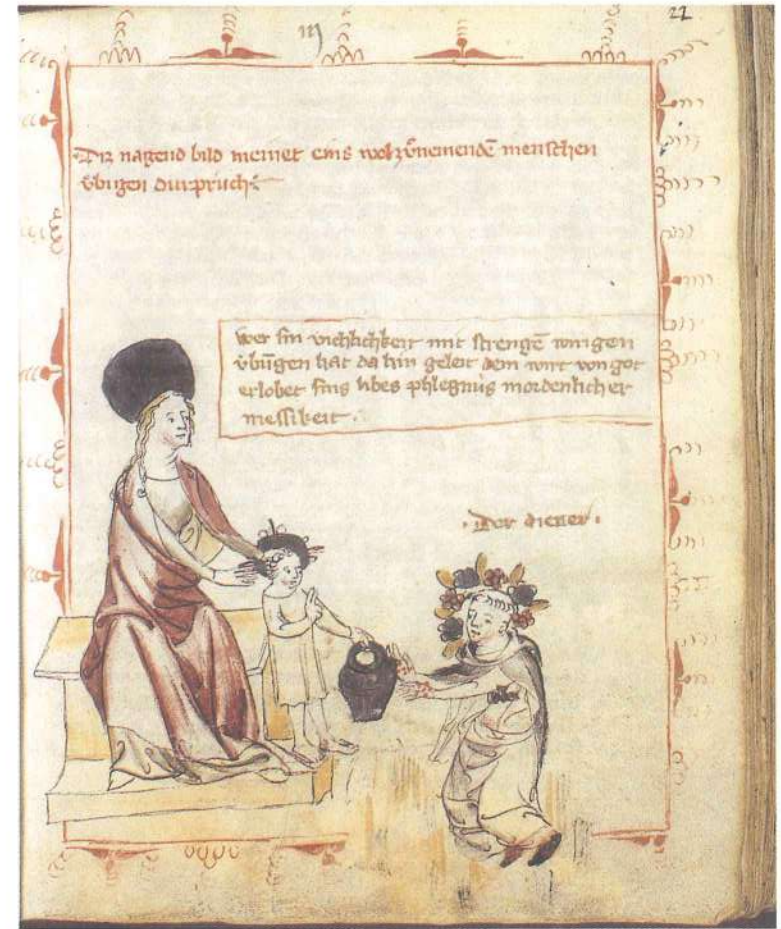 iij
22
Diz nagend bild meinet eins wolzůnemendē menschen
v̈bigen durpruch
wer sin vichlichkeit mit strengē wirigen
v̈būgen hat da hin geleit dem wirt von got
erlobet sins libes phlegnus mordenlicher
messikeit.
·Der diener·